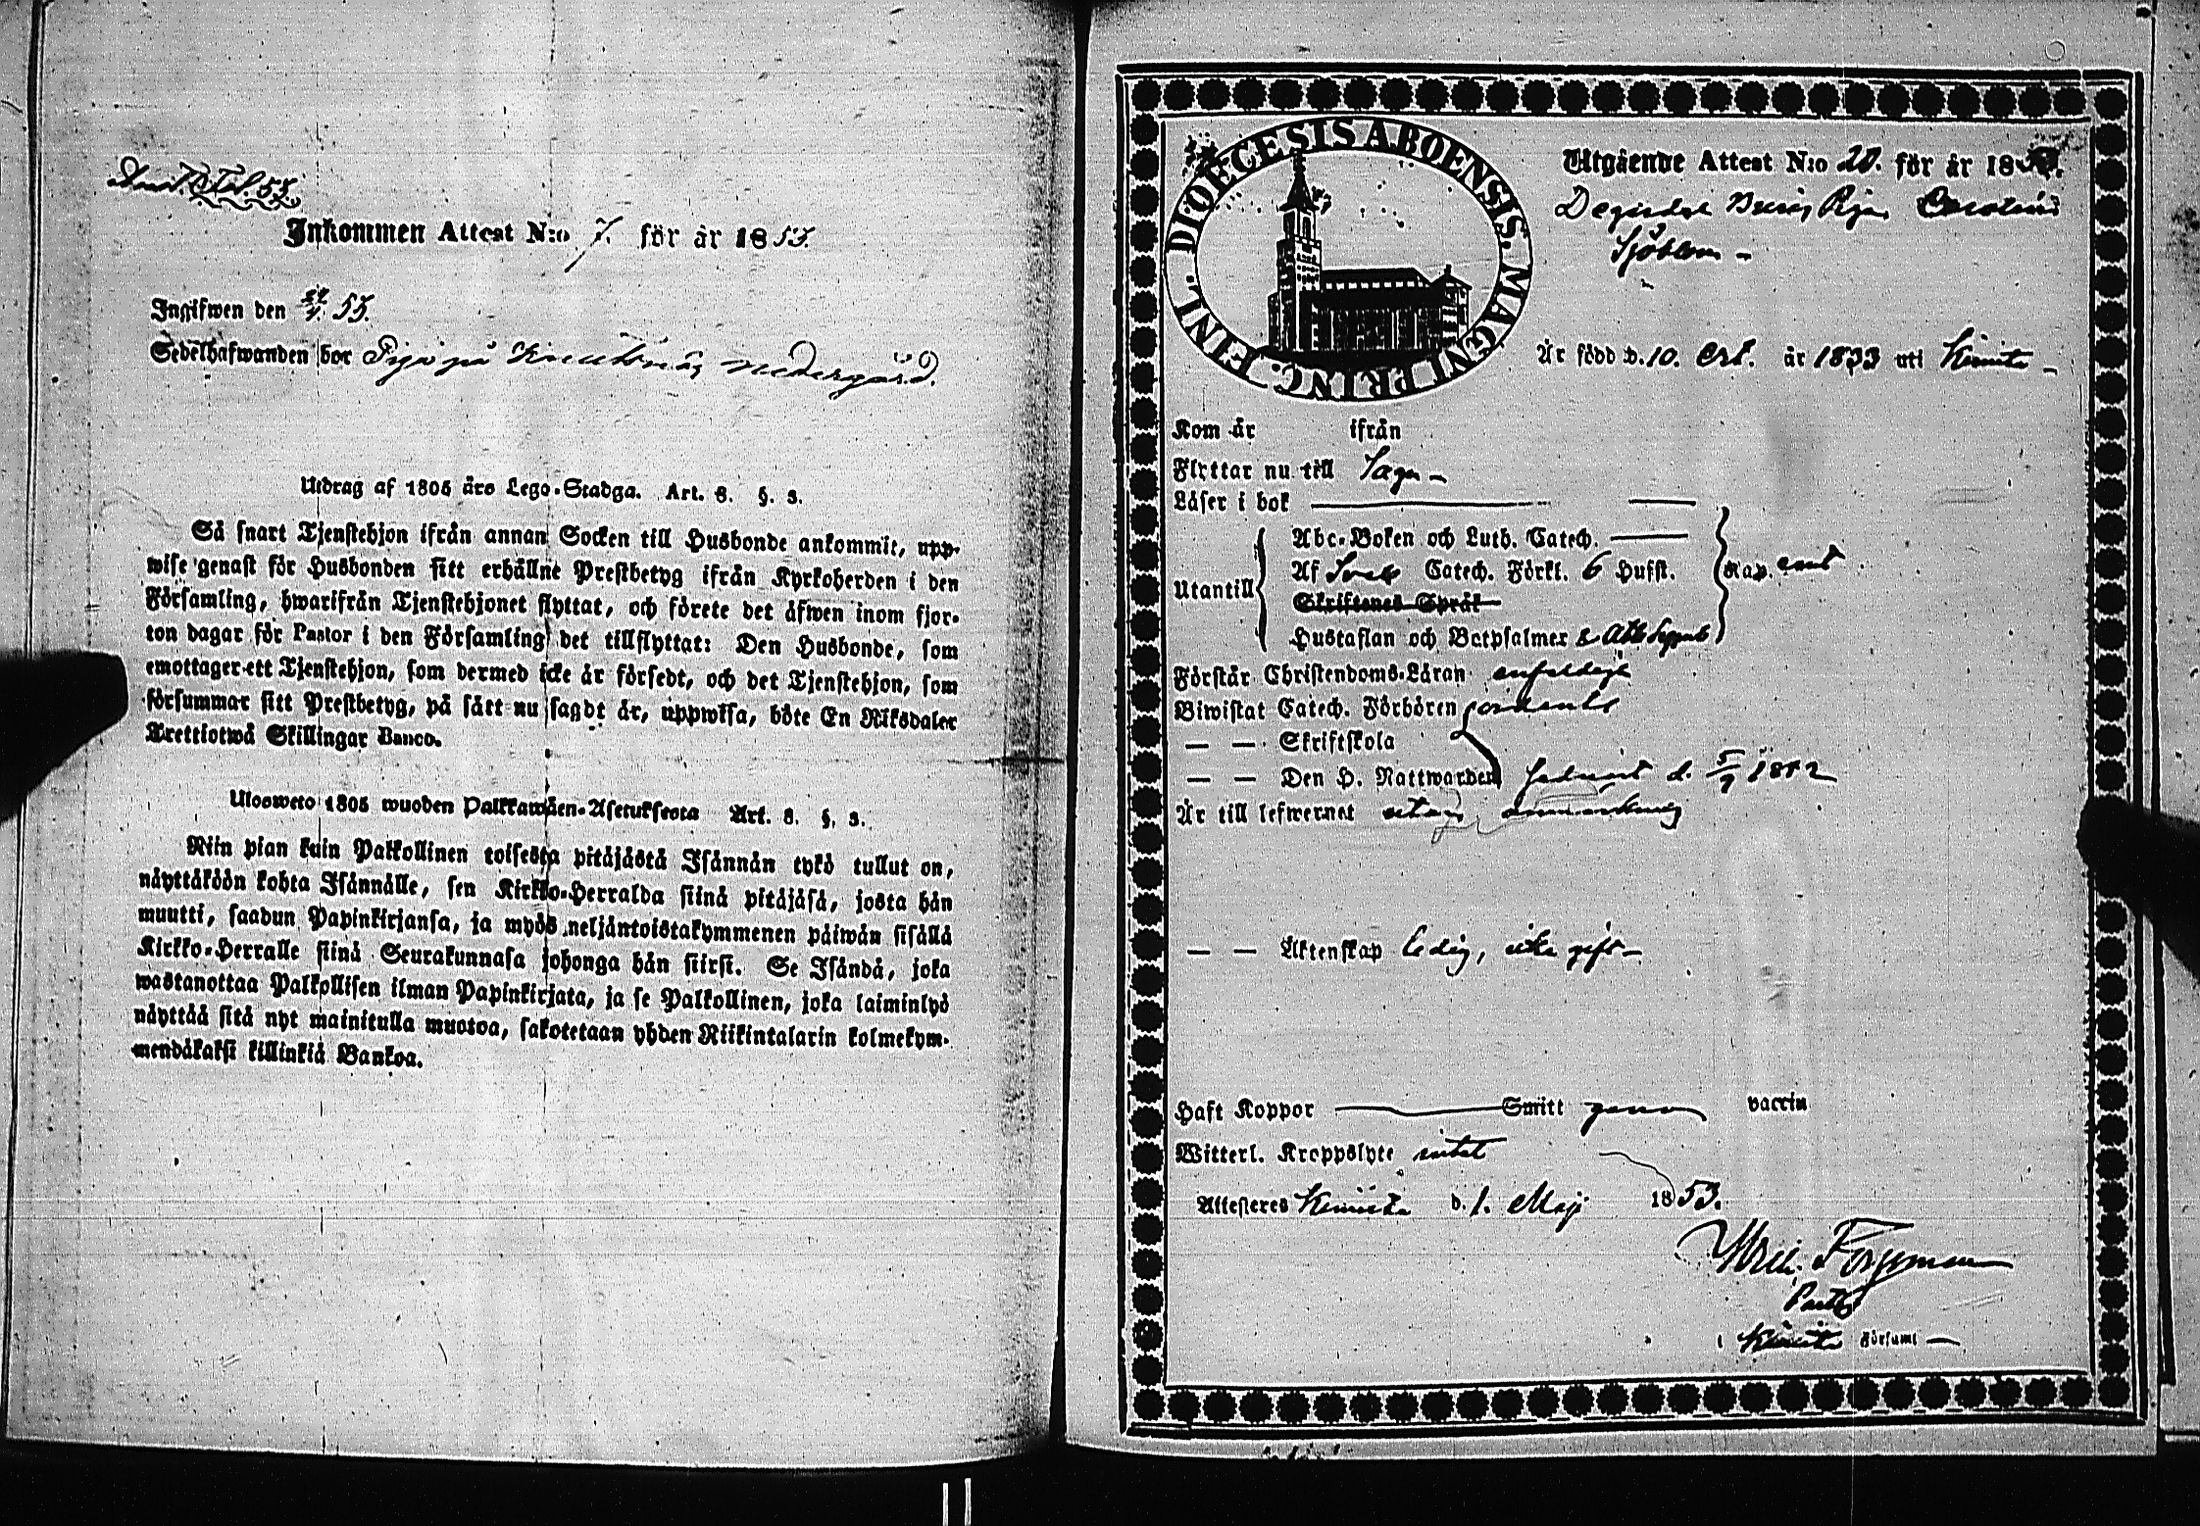 Inkommen Attest N:o 7. för år 1853.
Ingifwen den 53.
Sedelhafwanden bor Piga på nedergård.
Utdrag af 1805 års Lego-Stadga. Art. 8. §. 3.
Så snart Tjenstehjon ifrån annan Socken till Husbonde ankommit, upp-
wise genast för Husbonden sitt erhållne Prestbetyg ifrån Kyrkoherden i den
Församling, hwarifrån Tjenstehjonet flyttat, och förete det äfwen inom fjor-
ton dagar för Pastor i den Församling det tillflyttat: Den Husbonde, som
emottager ett Tjenstehjon, som dermed icke är försedt, och det Tjenstehjon, som
försummar sitt Prestbetyg, på sätt nu sagdt är, uppwisa, böte En Riksdaler
Trettiotwå Skillingar Banco.
Ulosweto 1805 wuoden Palkkawäen-Asetuksesta Art. 8. §. 3.
Niin pian kuin Palkollinen toisesta pitäjästä Isännän tykö tullut on,
näyttäköön kohta Isännälle, sen Kirkko-Herralda siinä pitäjäsä, josta hän
muutti, saadun Papinkirjansa, ja myös neljäntoistakymmenen päiwän sisällä
Kirkko-Herralle siinä Seurakunnasa johonga hän siirsi. Se Isändä, joka
wastanottaa Palkollisen ilman Papinkirjata, ja se Palkollinen, joka laiminlyö
näyttää sitä nyt mainitulla muotoa, sakotetaan yhden Riikintalarin kolmekym-
mendäkaksi killinkiä Bankoa.
DIOECESIS ABOENSIS. MAGNI PRINC. FINL.
Utgående Attest N:o 20. för år 1853.
Piga Carolina
Sjöblom
Är född d. 10. Oct. år 1833 uti Kimito
Kom år ifrån
Flyttar nu till Sagu
Läser i bok
Utantill
Abc-Boken och Luth. Catech.
Af Sveb. Catech. Förkl. 6 Hufst.
Skriftenes Språk
Hustaflan och Botpsalmer & Ath. Symb.
Kap.
Förstår Christendoms-Läran enfaldigt
Biwistat Catech. Förhören ordentl.
— — Skriftskola
— — Den H. Nattwarden d. 5/9 1852
Är till lefwernet utan anmärkning
— — Äktenskap ledig, icke gift
Haft Koppor Smitt genom vaccin
Witterl. Kroppslyte intet
Attesteres Kimito d. 1. Maji 1853.
i Kimito Församl.